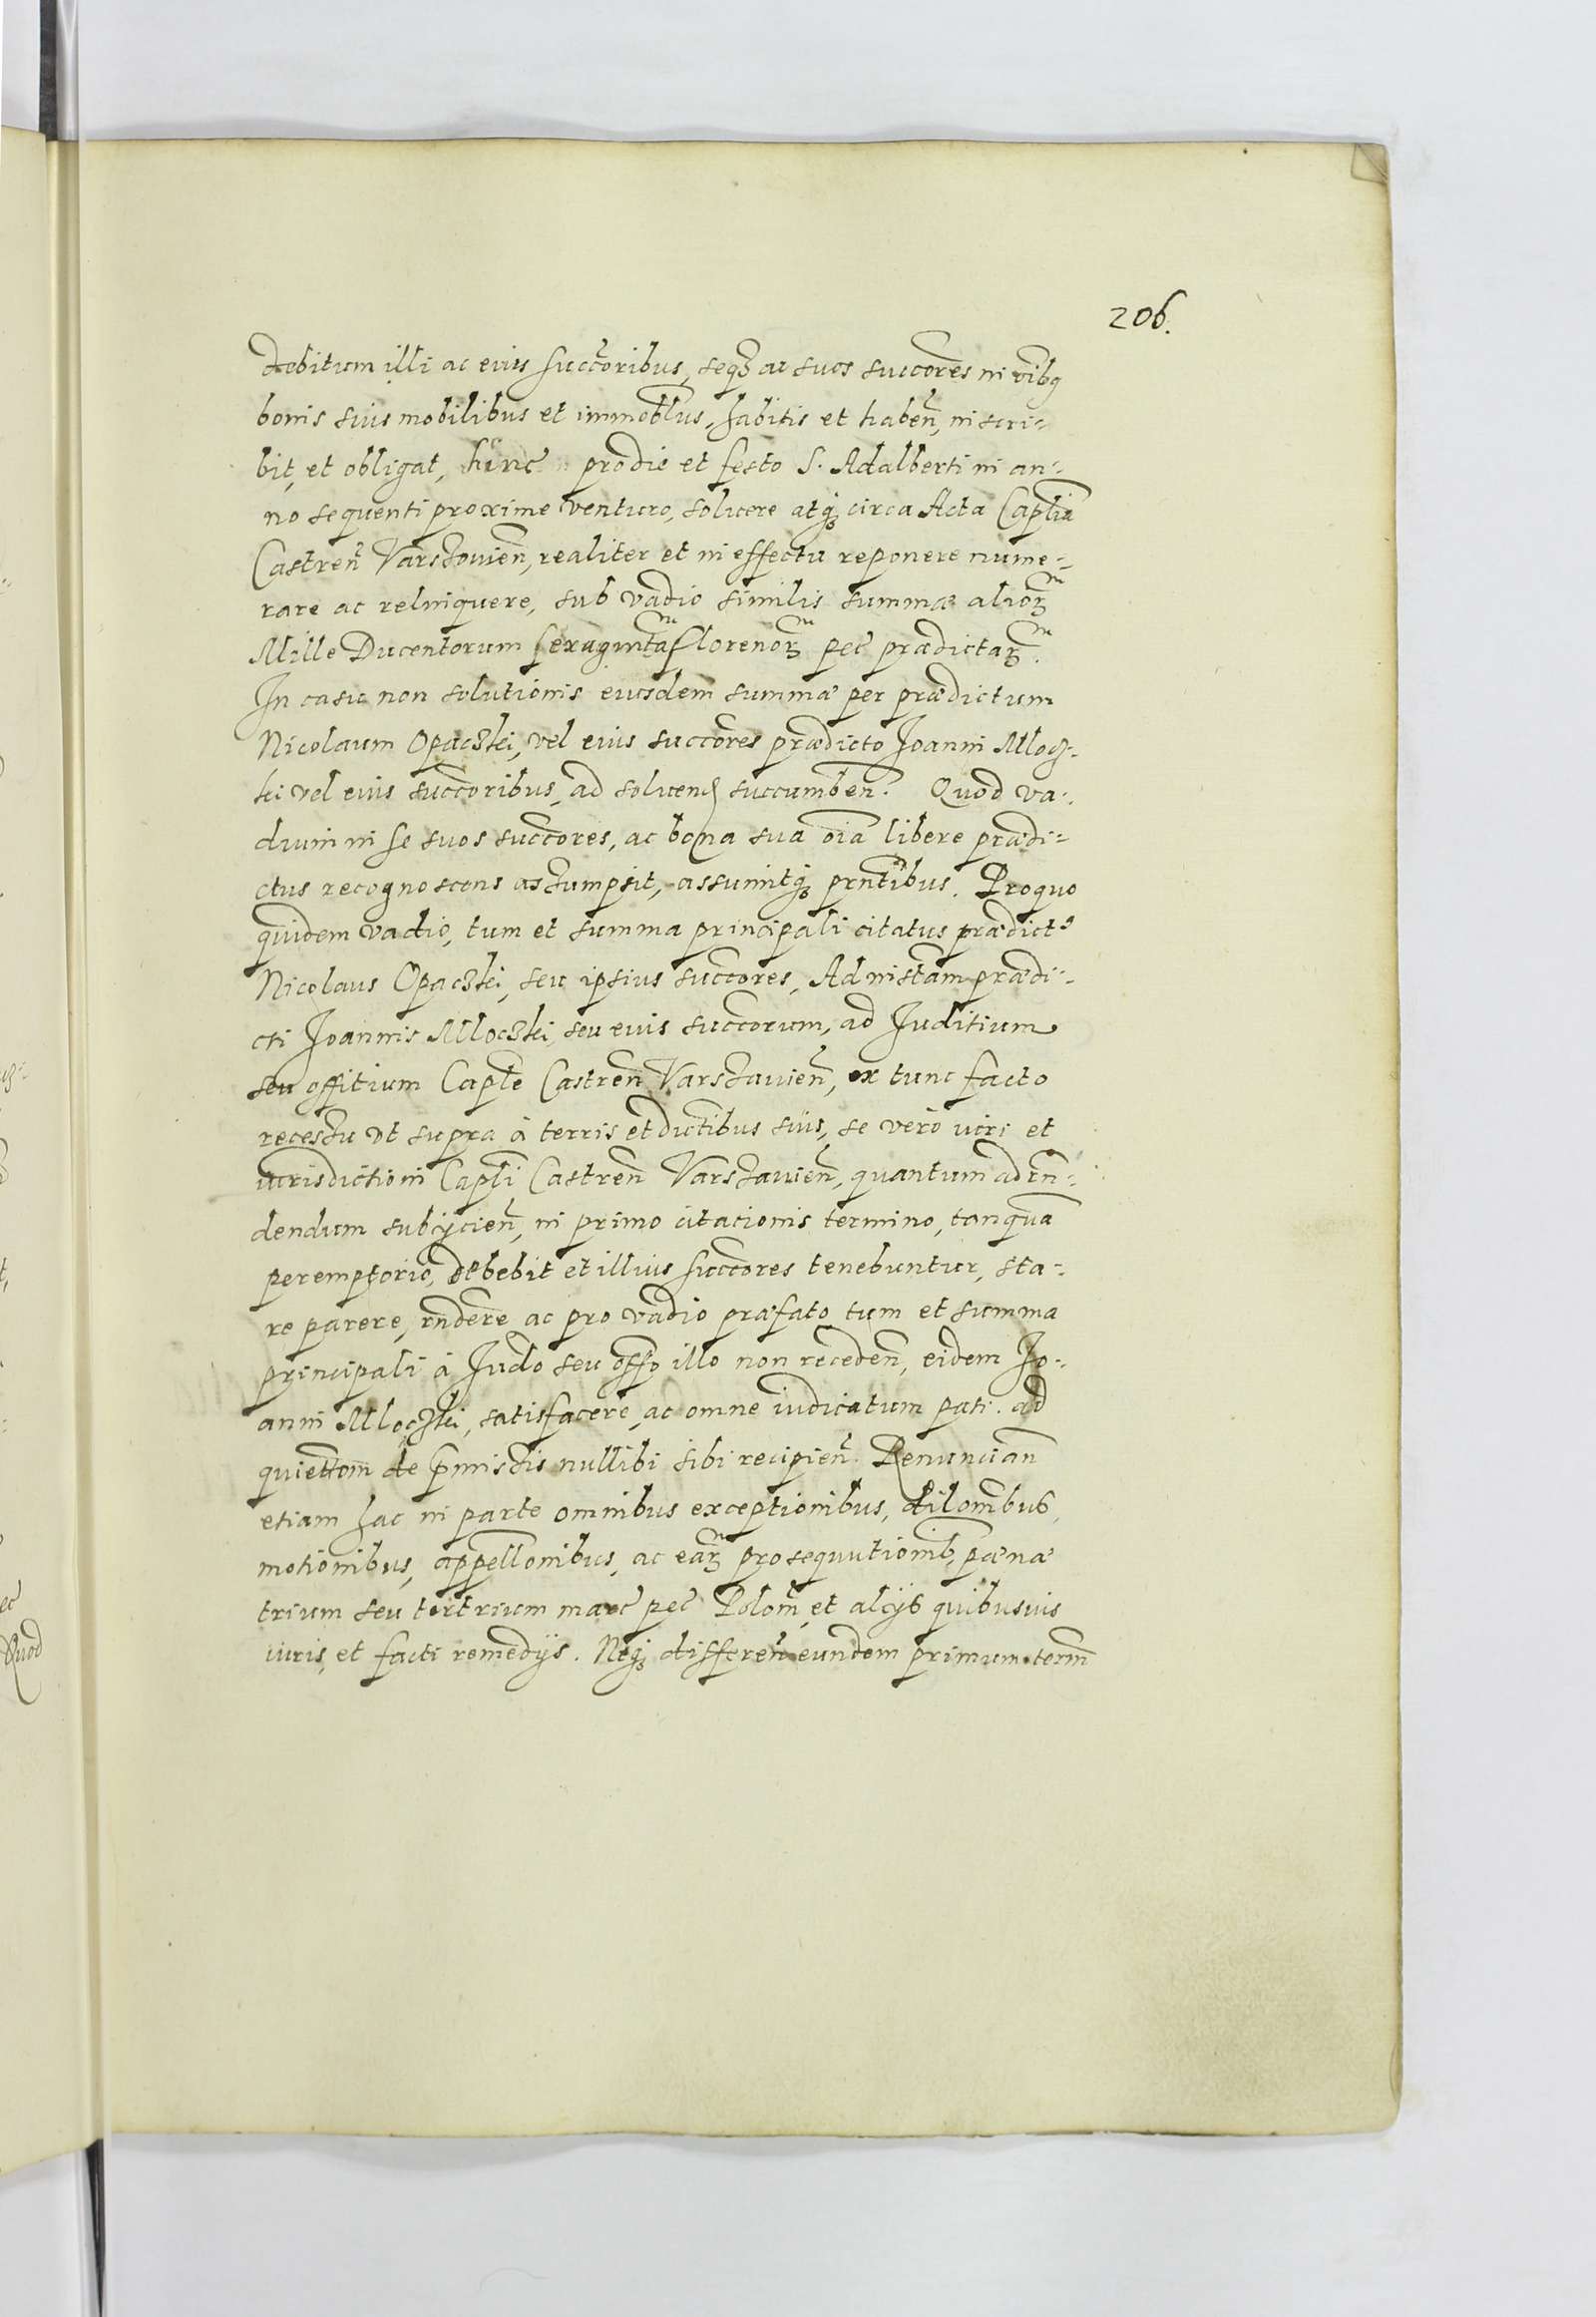 206.
debitum illi ac eius succ̃oribus, seqz ac suos succores in oĩbq
bonis suis mobilibus et immobl̃us, habitis et habeñ, inscri-
bit, et obligat, hinc prodie et festo S. Adalberti in an-
no sequenti proxime venturo, soluere atqz circa Acta Capl̃ia
Castreñ Varssouieñ, realiter et in effectu reponere nume-
rare ac relinquere, sub vadio similis summæ aliorz
Mille Ducentorum sexaginta florenorz pec̃ prædictarz.
In casu non solutionis eiusdem summæ per prædictum
Nicolaum Opaczki, vel eius succores prædicto Joanni Mlocz-
ki vel eius succoribus, ad soluend succumbeñ. Quod va-
dium in se suos succores, ac bona sua oĩa libere prædi-
ctus recognoscens assumpsit, assumitqz prñtibus. Pro quo
quidem vadio, tum et summa principali citatus prædict9
Nicolaus Opaczki, seu ipsius succores, Ad inst̃am prædi-
cti Joannis Mloczki, seu euis succorum, ad Juditium
seu offitium Capl̃e Castreñ Varssauieñ, ex tunc facto
recessu vt supra à terris et dictibus suis, se verò iuri et
iurisdictioni Capl̃i Castreñ Varssauieñ, quantum ad rñ-
dendum subijcieñ, in primo citationis termino, tanquã
peremptorio, debebit et illius succores tenebuntur, sta-
re parere, rñdere ac pro vadio præfato tum et summa
principali à Judo seu offo illo non recedeñ, eidem Jo-
anni Mloczki, satisfacere, ac omne iudicatum pati. ad
quiettom̃ de p̃missis nullibi sibi recipieñ. Renuncian̄
etiam hac in parte omnibus exceptionibus, dilom̃bus,
motionibus, appellonibus, ac earz prosequutionib, pænæ
trium seu ter trium marc̃ pec̃ Polom̃, et alijs quibusuis
iuris, et facti remedijs. Neqz differeñ eundem primum term̃